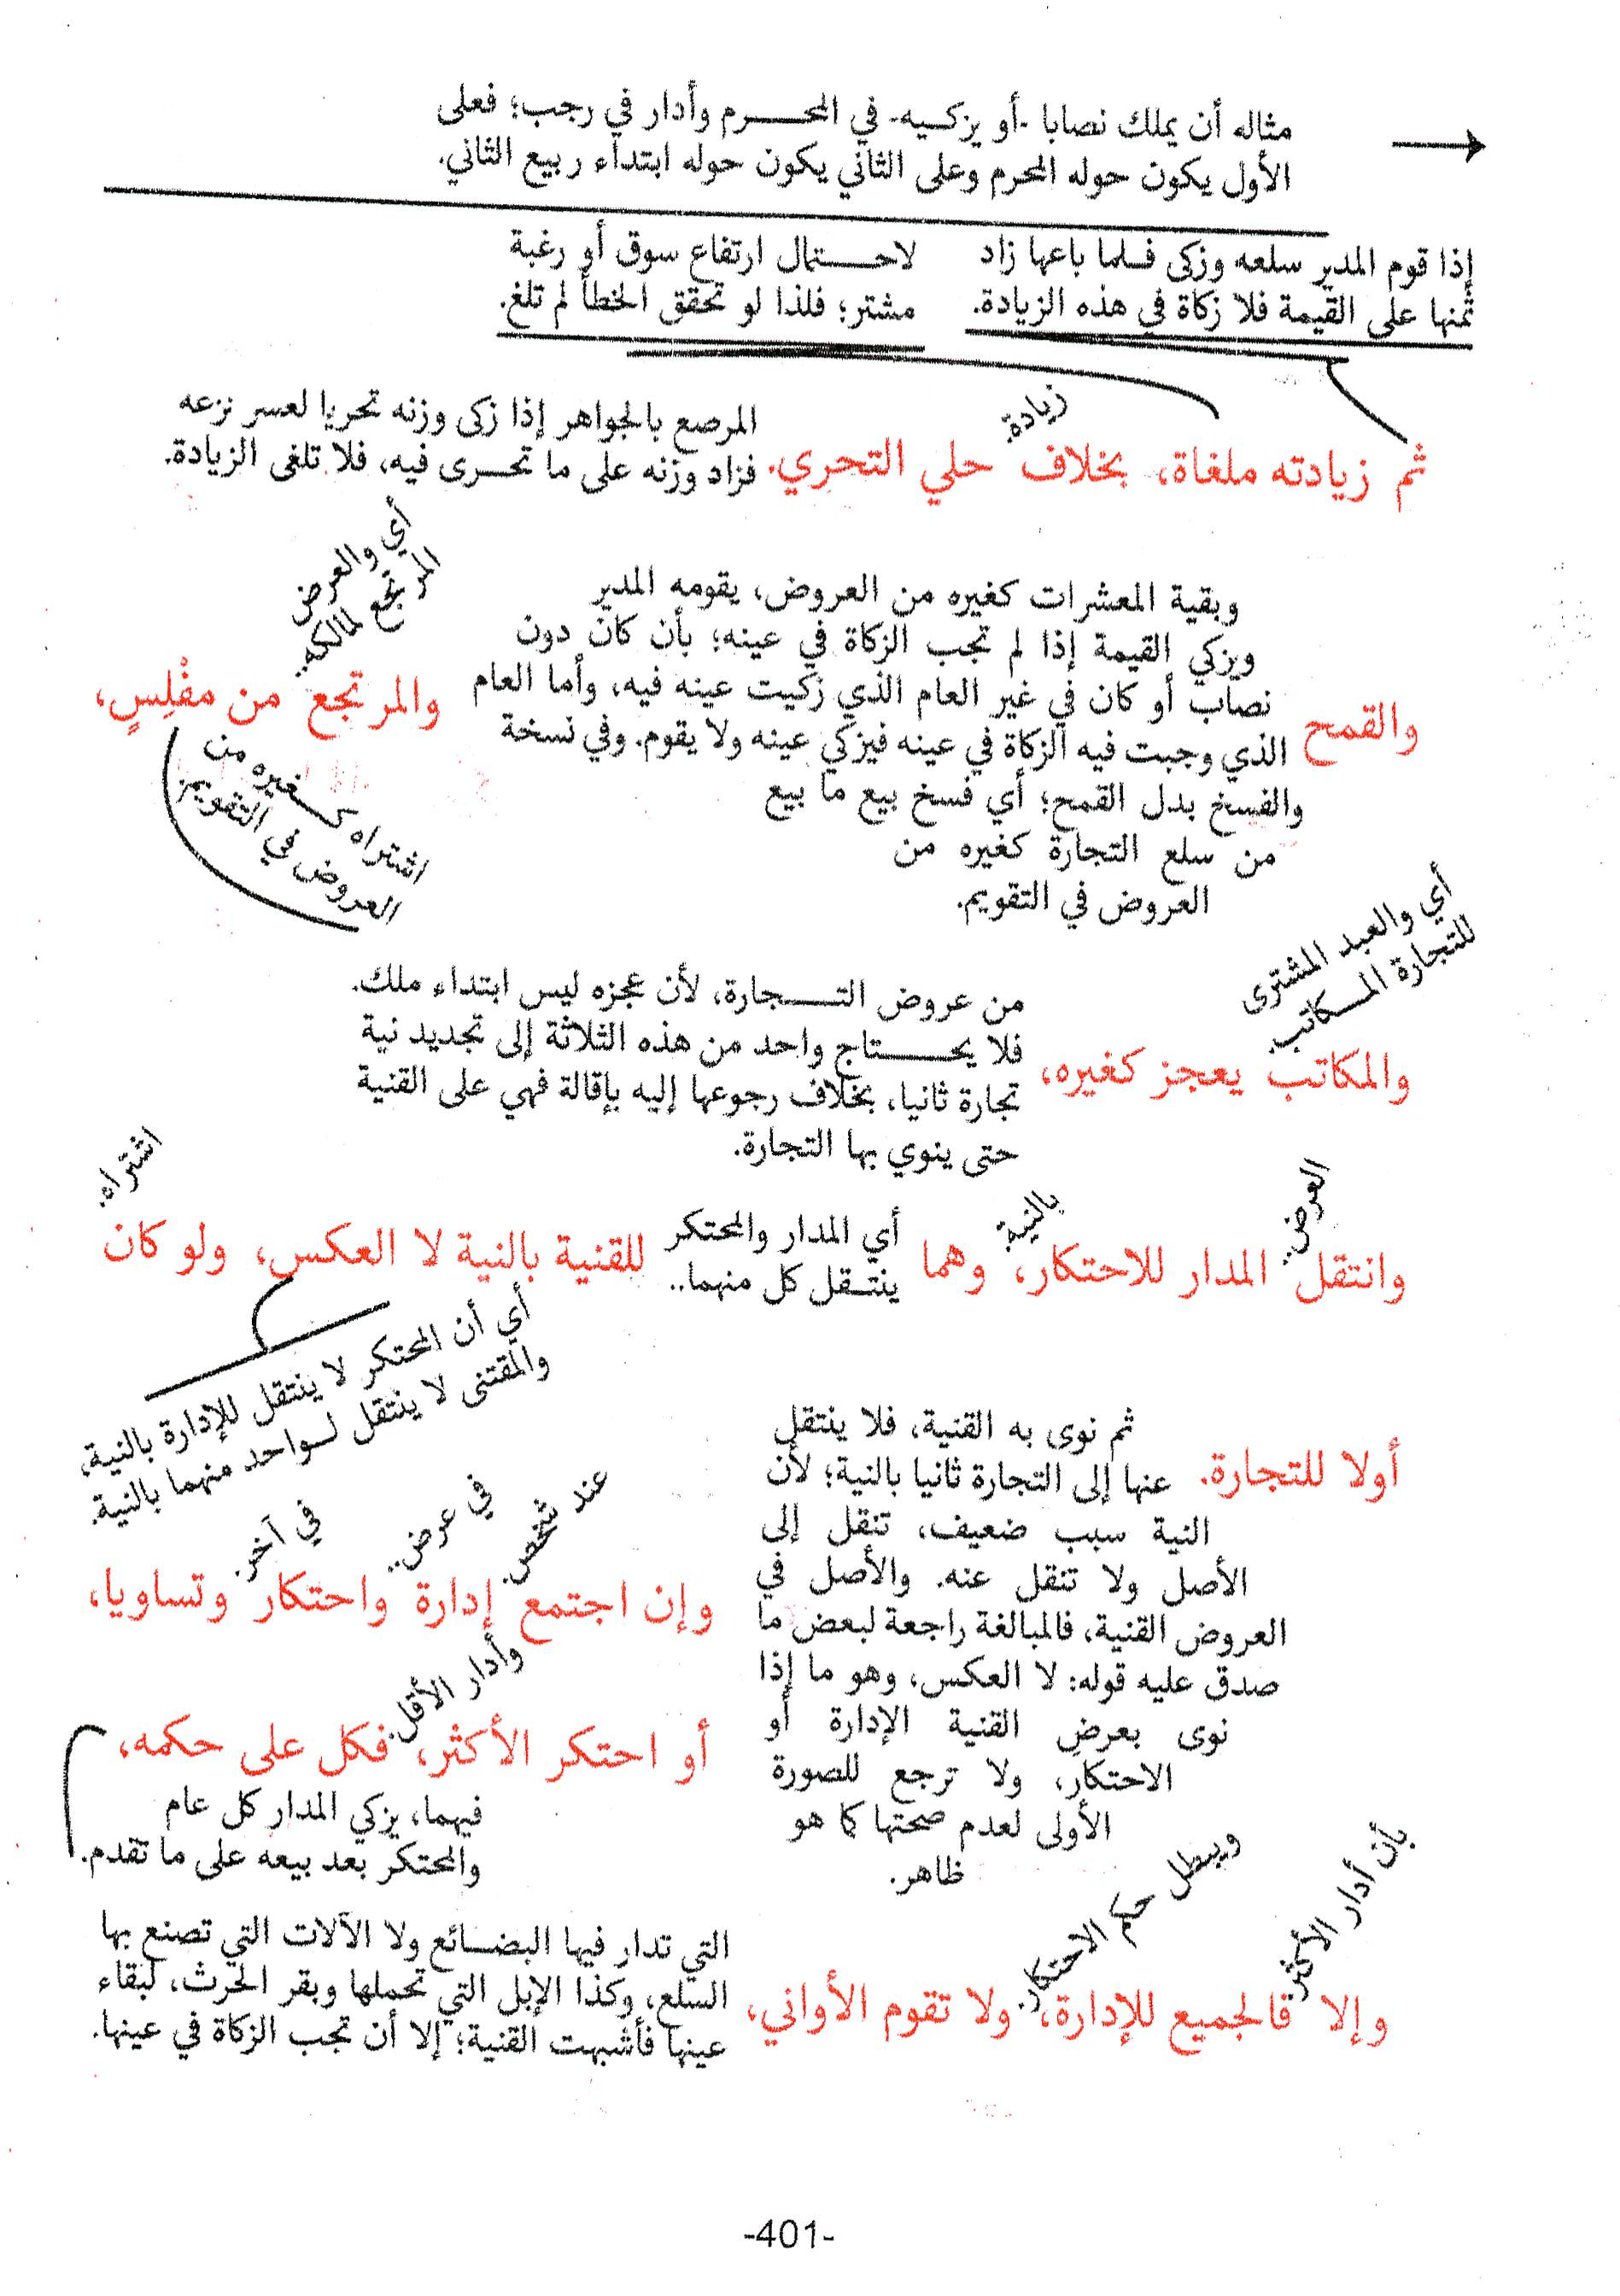 مثاله أن يملك نصابا -أو يزكيه- في المحرم وأدار في رجب؛ فعلى
الأول يكون حوله المحرم وعلى الثاني يكون حوله ابتداء ربيع الثاني.
إذا قوم المدير سلعه وزكى فلما باعها زاد
ثمنها على القيمة فلا زكاة في هذه الزيادة.
لاحتمال ارتفاع سوق أو رغبة
مشتر؛ فلذا لو تحقق الخطأ لم تلغ.
ثم زيادته ملغاة، بخلاف حلي التحري.
زيادة.
المرصع بالجواهر إذا زكى وزنه تحريا لعسر نزعه
فزاد وزنه على ما تحرى فيه، فلا تلغى الزيادة.
والقمح
وبقية المعشرات كغيره من العروض، يقومه المدير
ويزكي القيمة إذا لم تجب الزكاة في عينه؛ بأن كان دون
نصاب أو كان في غير العام الذي زكيت عينه فيه، وأما العام
الذي وجبت فيه الزكاة في عينه فيزكي عينه ولا يقوم. وفي نسخة
والفسخ بدل القمح؛ أي فسخ بيع ما بيع
من سلع التجارة كغيره من
العروض في التقويم.
والمرتجع من مفْلِسٍ،
أي والعرض
المرتجع لمالكه..
اشتراه كغيره من
العروض في التقويم.
والمكاتب يعجز كغيره،
أي والعبد المشترى
للتجارة المكاتب.
من عروض التجارة، لأن عجزه ليس ابتداء ملك.
فلا يحتاج واحد من هذه الثلاثة إلى تجديد نية
تجارة ثانيا، بخلاف رجوعها إليه بإقالة فهي على القنية
حتى ينوي بها التجارة.
وانتقل المدار للاحتكار، وهما
العرض..
بالنية.
أي المدار والمحتكر
ينتقل كل منهما..
للقنية بالنية لا العكس، ولو كان
اشتراه.
أي أن المحتكر لا ينتقل للإدارة بالنية،
والمقتنى لا ينتقل لواحد منهما بالنية.
أولا للتجارة.
ثم نوى به القنية، فلا ينتقل
عنها إلى التجارة ثانيا بالنية؛ لأن
النية سبب ضعيف، تنقل إلى
الأصل ولا تنقل عنه. والأصل في
العروض القنية، فالمبالغة راجعة لبعض ما
صدق عليه قوله: لا العكس، وهو ما إذا
نوى بعرض القنية الإدارة أو
الاحتكار، ولا ترجع للصورة
الأولى لعدم صحتها كما هو
ظاهر.
وإن اجتمع إدارة واحتكار وتساويا،
عند شخص.
في عرض..
في آخر.
أو احتكر الأكثر، فكل على حكمه،
وأدار الأقل.
فيهما، يزكي المدار كل عام
والمحتكر بعد بيعه على ما تقدم.
وإلا فالجميع للإدارة، ولا تقوم الأواني،
بأن أدار الأكثر.
ويبطل حكم الاحتكار.
التي تدار فيها البضائع ولا الآلات التي تصنع بها
السلع، وكذا الإبل التي تحملها وبقر الحرث، لبقاء
عينها فأشبهت القنية؛ إلا أن تجب الزكاة في عينها.
-401-